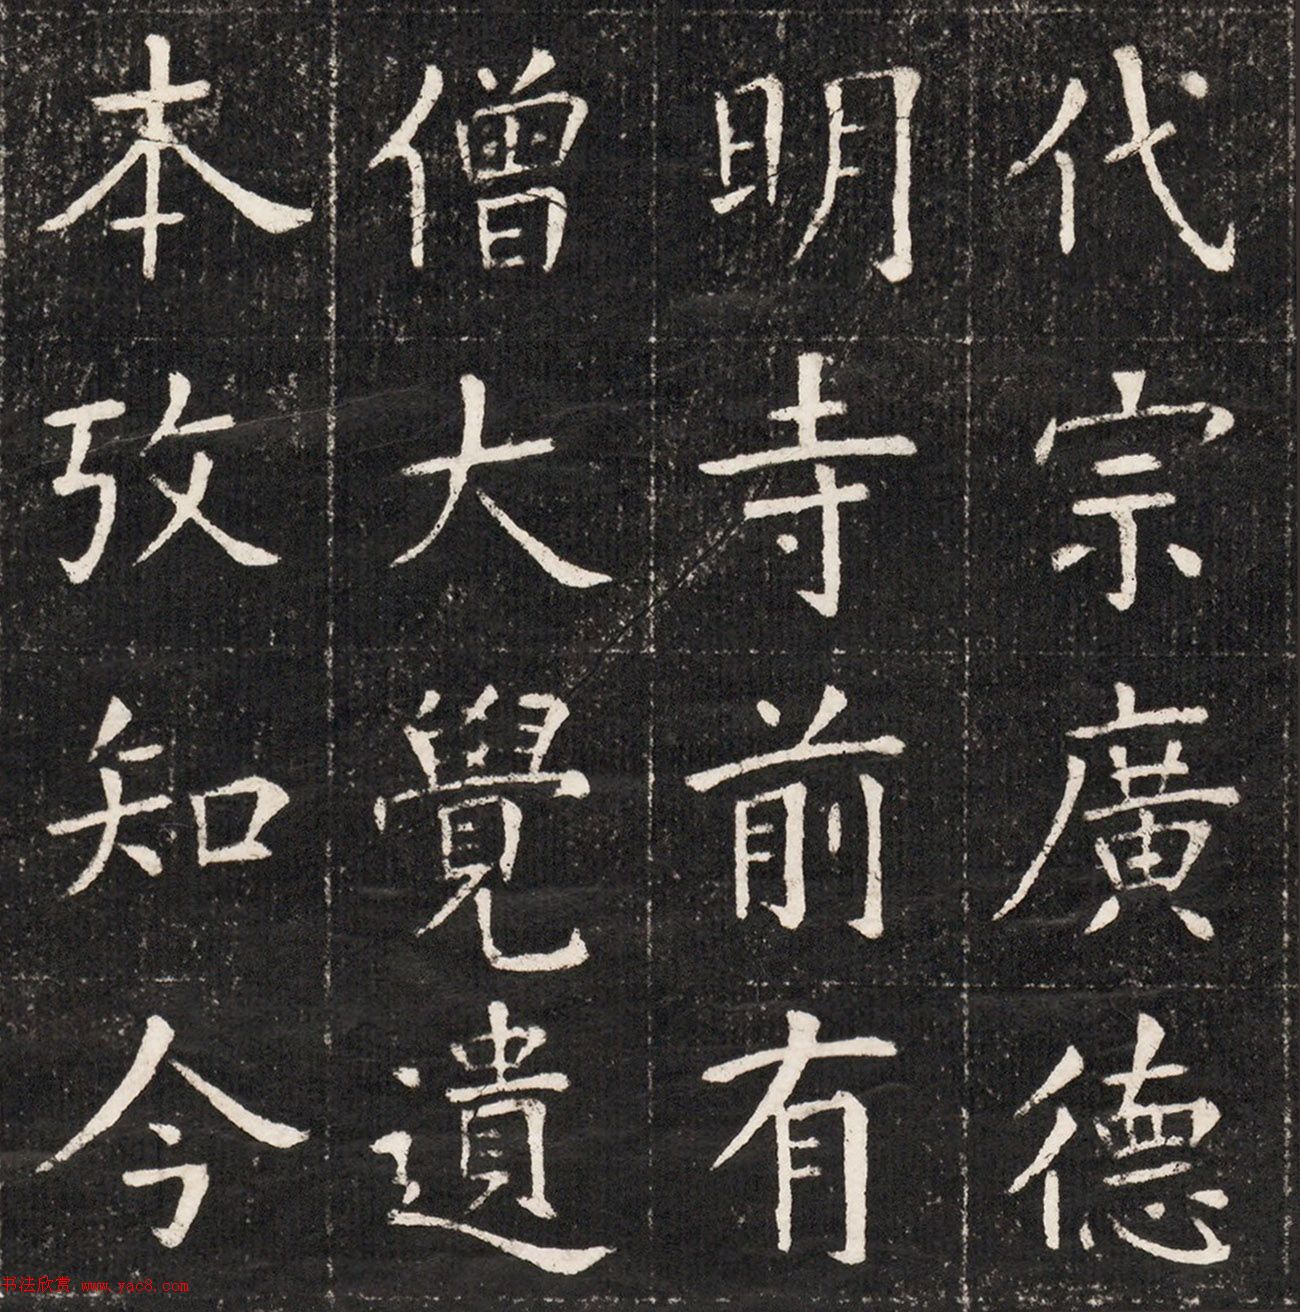 代宗廣德
明寺前有
僧大覺遺
本攷知今
书法欣赏 www.yac8.com